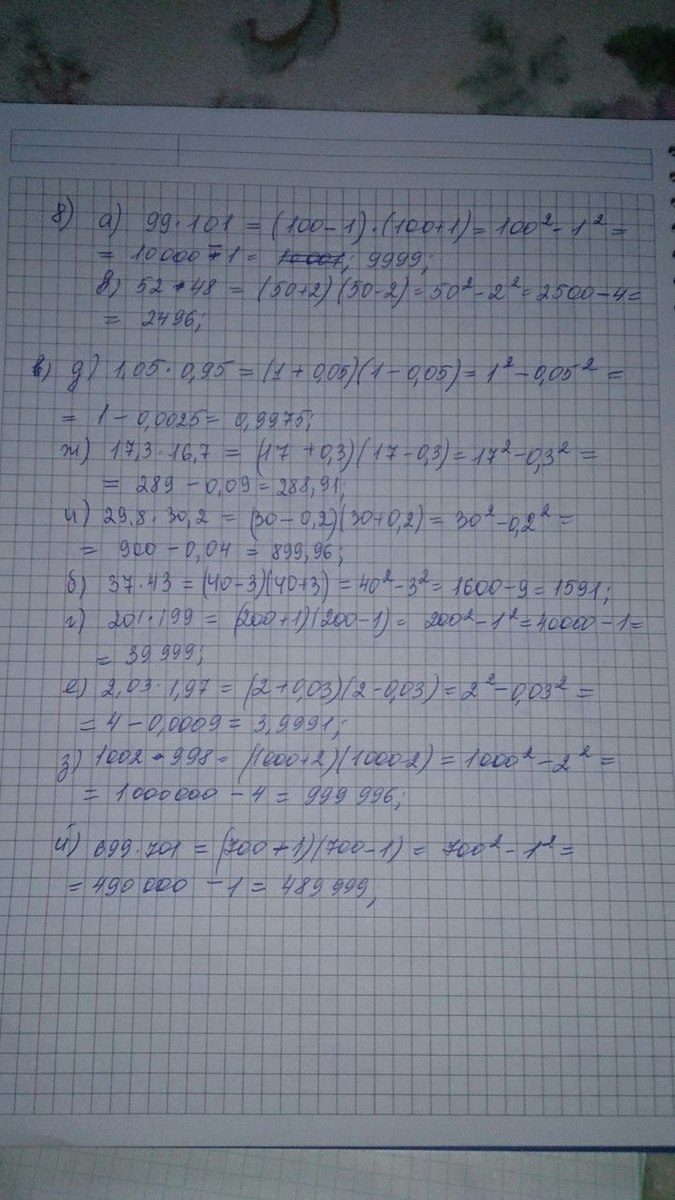 8) а) 99·101 = (100-1)·(100+1) = 100²-1² =
= 10000-1 = 10001; 9999;
в) 52·48 = (50+2)(50-2) = 50²-2² = 2500-4 =
= 2496;
в) д) 1,05·0,95 = (1+0,05)(1-0,05) = 1²-0,05² =
= 1-0,0025 = 0,9975;
ж) 17,3·16,7 = (17+0,3)(17-0,3) = 17²-0,3² =
= 289-0,09 = 288,91;
и) 29,8·30,2 = (30-0,2)(30+0,2) = 30²-0,2² =
= 900-0,04 = 899,96;
б) 37·43 = (40-3)(40+3) = 40²-3² = 1600-9 = 1591;
г) 201·199 = (200+1)(200-1) = 200²-1² = 40000-1 =
= 39 999;
е) 2,03·1,97 = (2+0,03)(2-0,03) = 2²-0,03² =
= 4-0,0009 = 3,9991;
з) 1002·998 = (1000+2)(1000-2) = 1000²-2² =
= 1000000-4 = 999 996;
й) 699·701 = (700+1)(700-1) = 700²-1² =
= 490 000 -1 = 489 999;